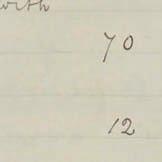 with
70
12